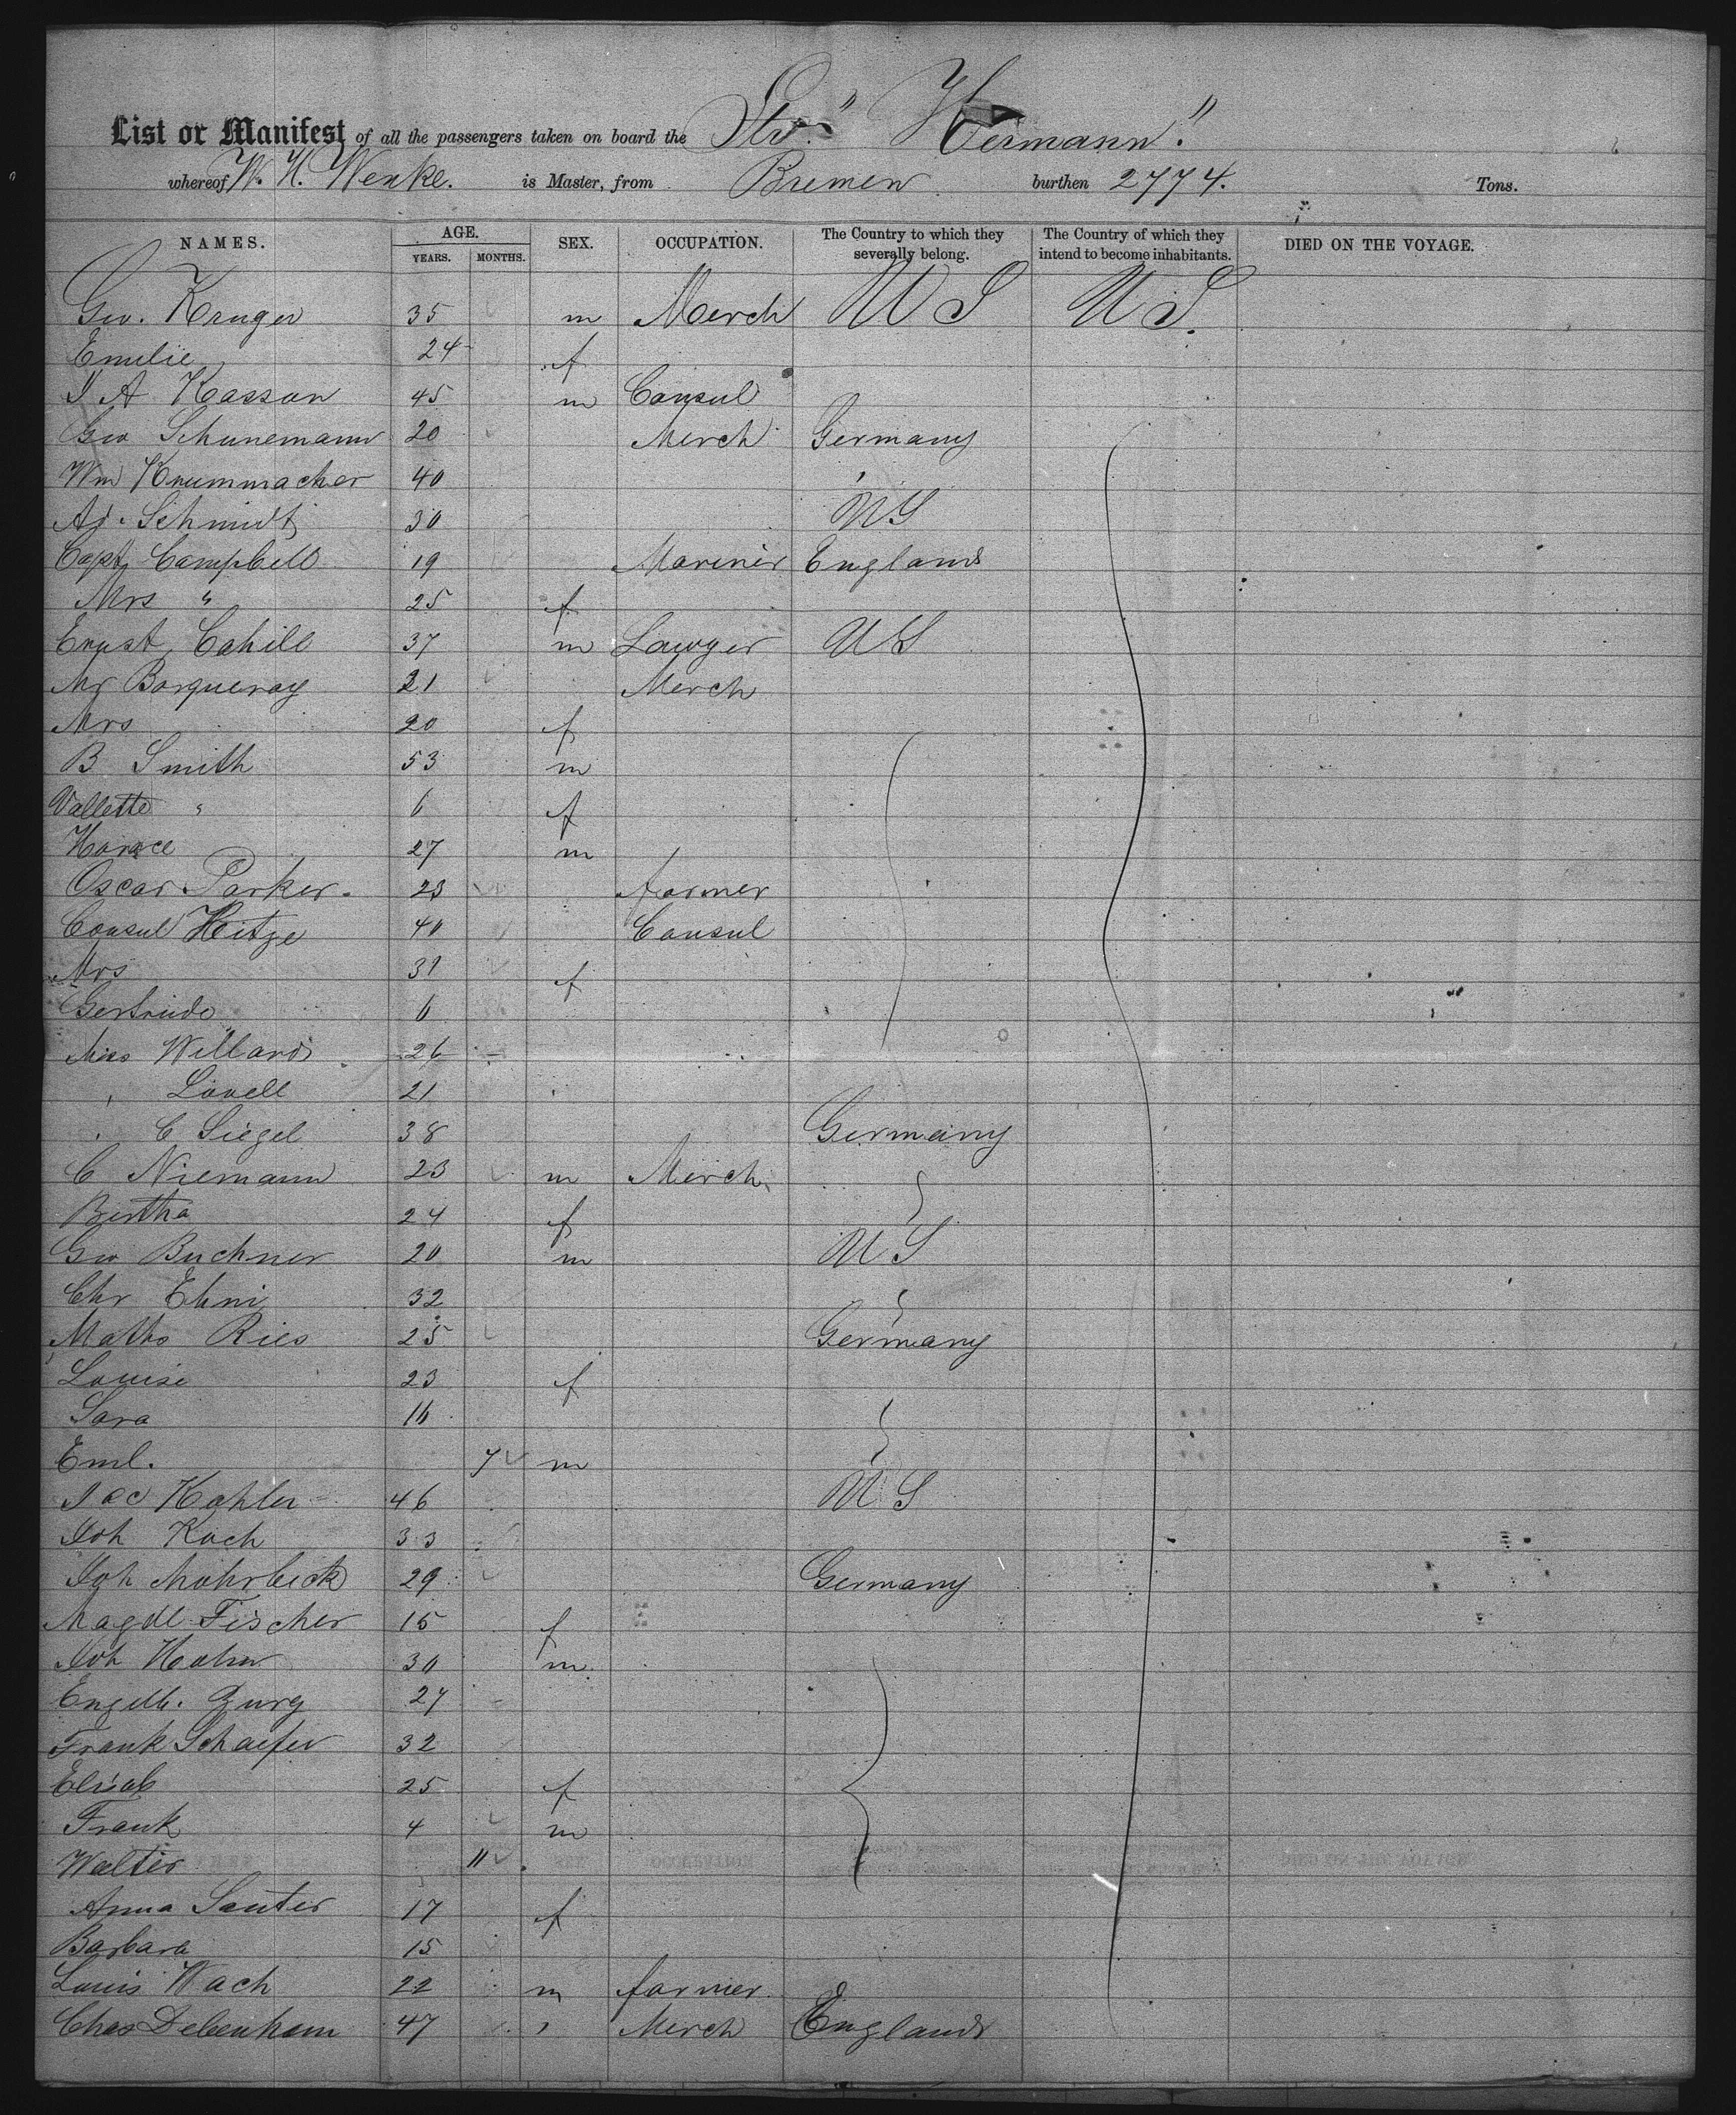 List or Manifest of all the passengers taken on board the Str. "Hermann".
whereof W. H. Wenke. is Master, from Bremen burthen 2774. Tons.
NAMES. AGE. YEARS. MONTHS. SEX. OCCUPATION. The Country to which they severally belong. The Country of which they intend to become inhabitants. DIED ON THE VOYAGE.
Geo. Kruger 35 m Merch U S U S.
Emilie 24 f
J A Kasson 45 m Consul
Geo Schunemann 20 Merch Germany
Wm Krummacher 40 "
Ad. Schmidt 30 U S
Capt Campbell 19 Mariner England
Mrs " 25 f
Ernst Cahill 37 m Lawyer U S
Mr Borqueray 21 Merch
Mrs 20 f
B Smith 53 m
Vallette " 6 f
Horace 27 m
Oscar Parker. 23 farmer
Consul Hitze 40 Consul
Mrs 31 f
Gertrude 6
Miss Willard 26
" Lovell 21
" C Siegel 38 Germany
C Niemann 23 m Merch
Bertha 24 f
Geo Buchner 20 m U S
Chr Ehni 32
Maths Ries 25 Germany
Louise 23 f
Sara 16
Eml. 7 m
Jac Kohler 46 U S
Joh Koch 33
Joh Mohrbeck 29 Germany
Magdl Fischer 15 f
Joh Hahn 30 m
Engelb. Zurg 27
Frank Schaefer 32
Elisab 25 f
Frank 4 m
Walter 11
Anna Sauter 17 f
Barbara 15
Louis Wach 22 m farmer
Chas Debenham 47 " Merch England